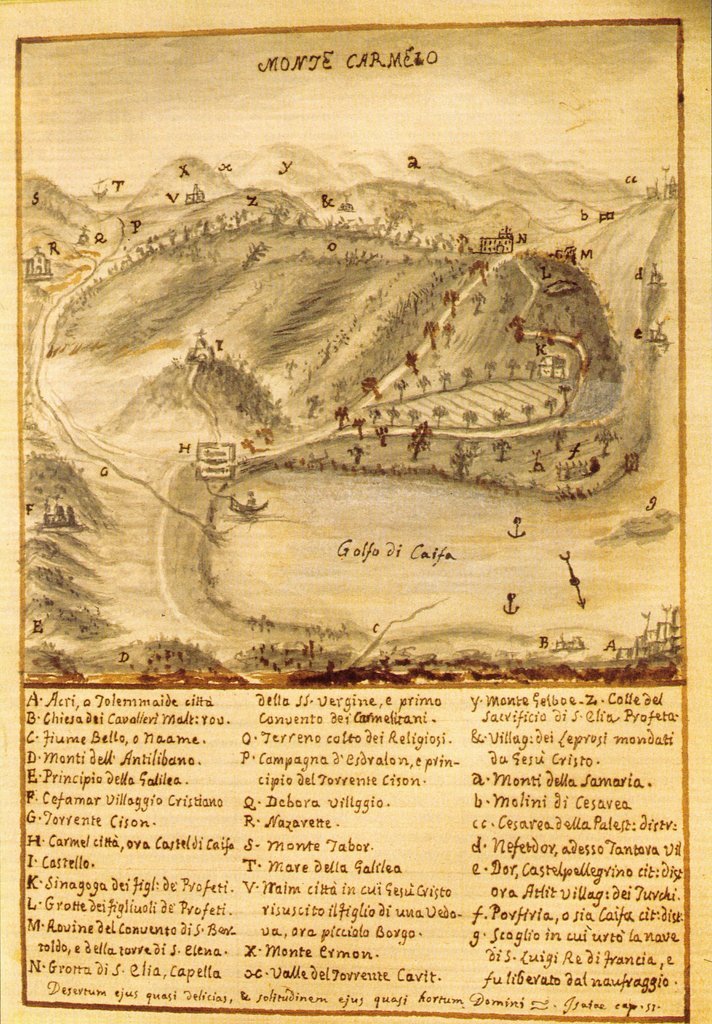 MONTE CARMELO
S
T
X
x
y
a
cc
V
Z
&
b
R
Q
P
O
N
M
L
d
I
K
e
H
G
f
F
g
Golfo di Caifa
E
D
C
B
A
A· Acri, o Tolemmaide città
B· Chiesa dei Cavalieri Malt: rov.
C· Fiume Bello, o Naame.
D· Monti dell' Antilibano.
E· Principio della Galilea.
F· Cefamar Villaggio Cristiano
G· Torrente Cison.
H· Carmel città, ora Castel di Caifa
I· Castello.
K· Sinagoga dei figl: de' Profeti.
L· Grotte dei figliuoli de' Profeti.
M· Rovine del Convento di S. Ber-
toldo, e della torre di S. Elena.
N· Grotta di S. Elia, Capella
della SS. Vergine, e primo
Convento dei Carmelitani.
O· Terreno colto dei Religiosi.
P· Campagna d'Esdralon, e prin-
cipio del Torrente Cison.
Q· Debora villggio.
R· Nazarette.
S· Monte Tabor.
T· Mare della Galilea
V· Naim città in cui Gesù Cristo
risuscitò il figlio di una Vedo-
va, ora picciolo Borgo.
X· Monte Ermon.
x· Valle del Torrente Cavit.
y· Monte Gelboe. Z· Colle del
Sacrificio di S. Elia Profeta
&· Villag: dei Leprosi mondati
da Gesù Cristo.
a· Monti della Samaria.
b· Molini di Cesarea
cc· Cesarea della Palest: distr:
d· Nefetdor, adesso Tantora vil
e· Dor, Castelpellegrino cit: dist
ora Atlit villag: dei Turchi.
f· Porfiria, o sia Caifa cit: dist
g· Scoglio in cui urtò la nave
di S. Luigi Re di Francia, e
fu liberato dal naufraggio.
Desertum ejus quasi delicias, & solitudinem ejus quasi hortum Domini Isaiae cap. 51.